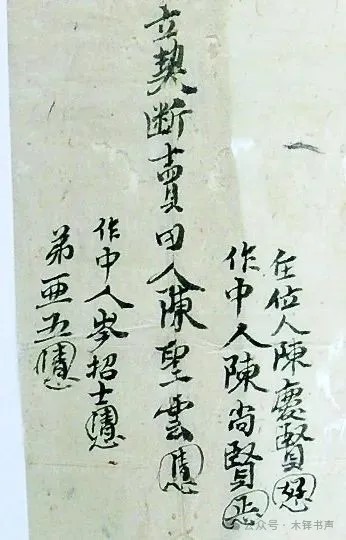 在位人陳慶賢
作中人陳尚賢
立契断賣田人陳聖雲
作中人岑招士
弟亜五
公众号·木铎书声